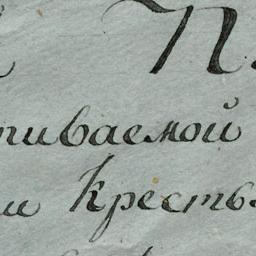 П.
пиваемой
и Кресть